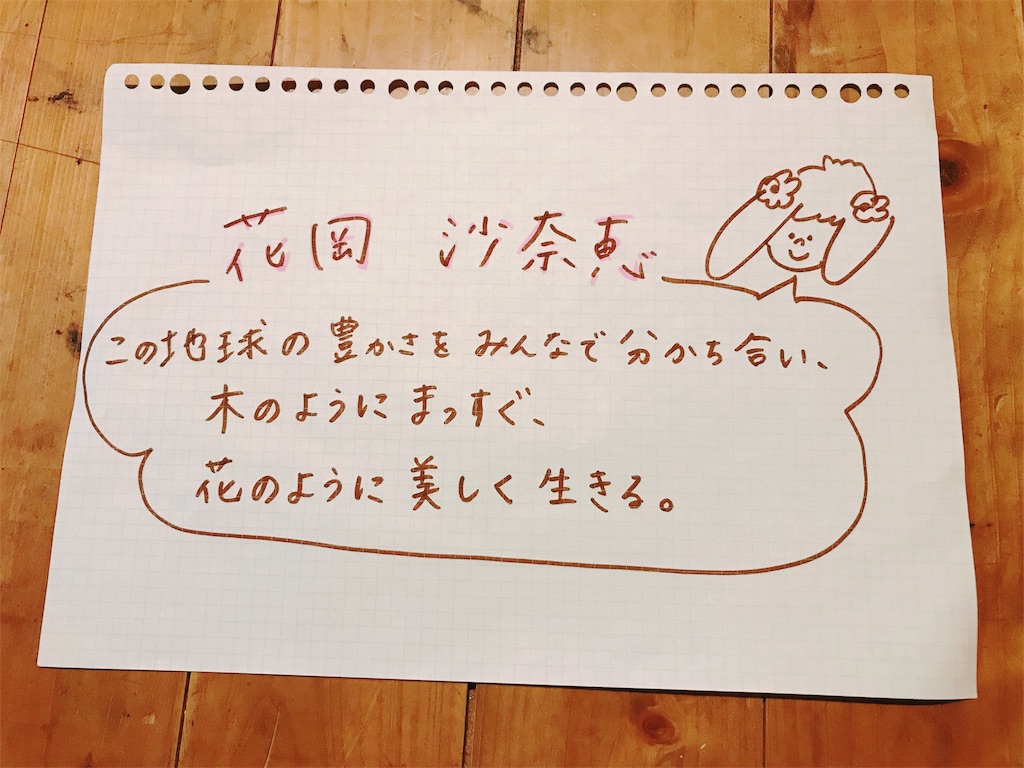 花岡 沙奈恵
この地球の豊かさをみんなで分かち合い、
木のようにまっすぐ、
花のように美しく生きる。